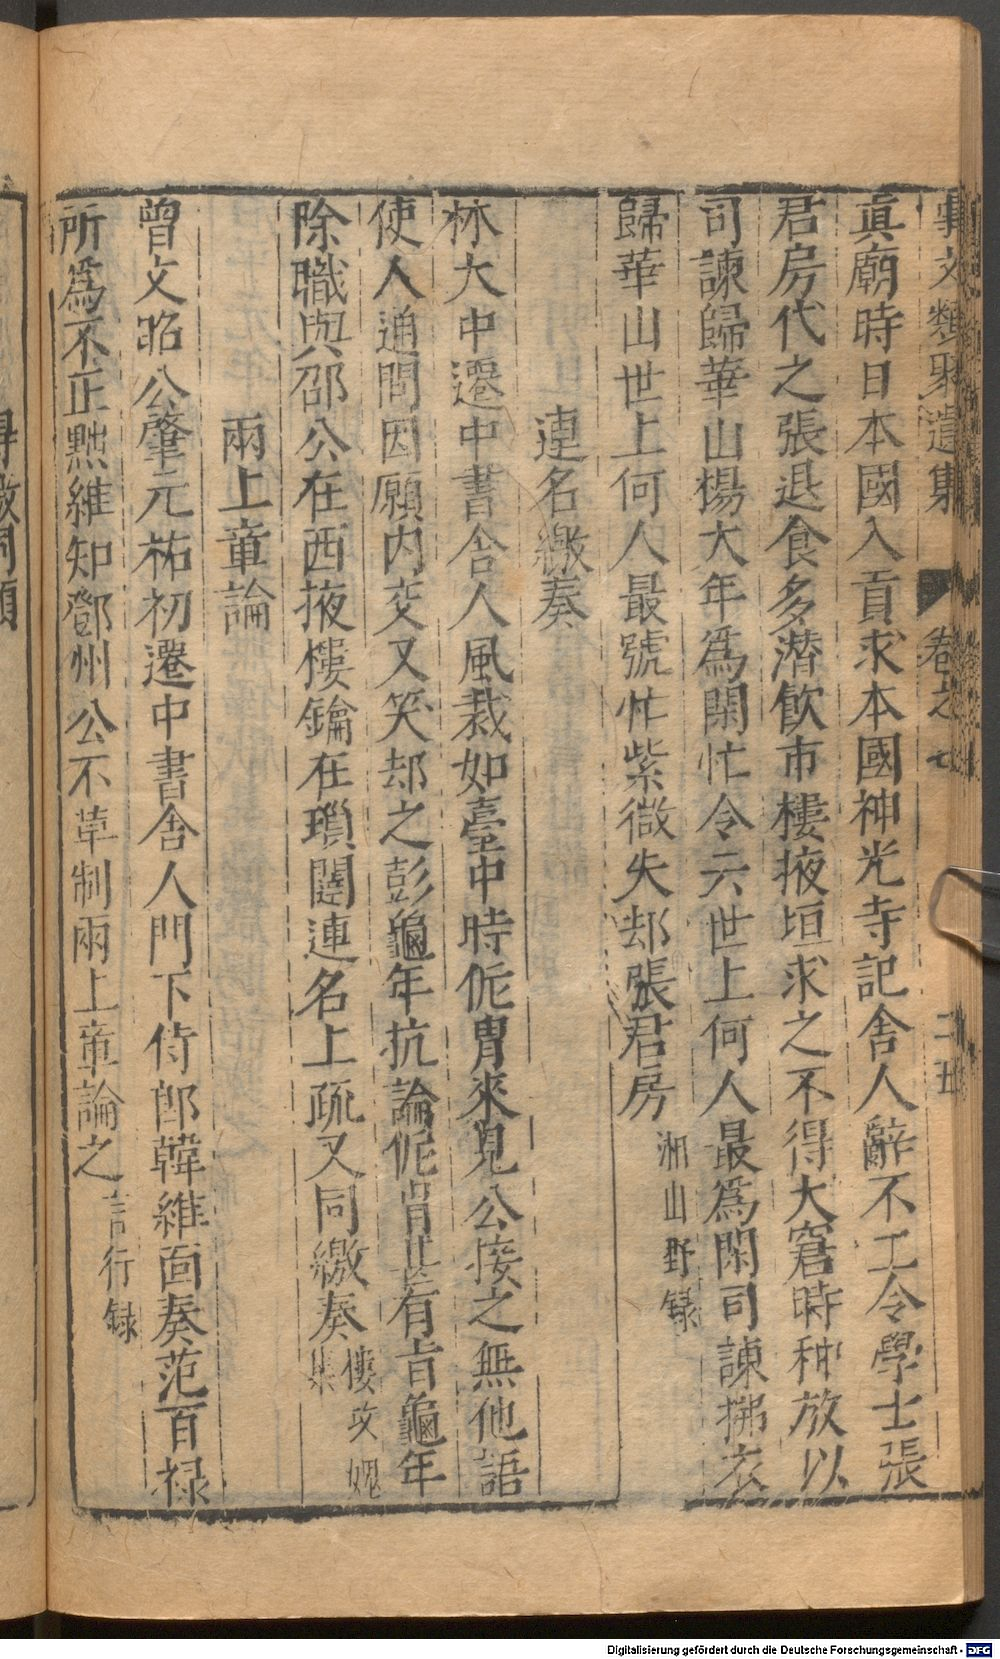 事文類聚遺集 卷之七 二五
真廟時日本國入貢求本國神光寺記舍人辭不工令學士張
君房代之張退食多潛飲市樓掖垣求之不得大窘時种放以
司諫歸華山楊大年為閑忙令云世上何人最為閑司諫拂衣
歸華山世上何人最號忙紫微失却張君房 湘山野録
連名繳奏
林大中遷中書舍人風裁如臺中時侂胄來見公接之無他語
使人通問因願内交又笑却之彭龜年抗論侂胄有旨龜年
除職與邵公在西掖樓鑰在瑣闥連名上疏又同繳奏 樓攻媿集
兩上章論
曾文昭公肇元祐初遷中書舍人門下侍郎韓維面奏范百禄
所為不正黜維知鄧州公不草制兩上章論之 言行録
Digitalisierung gefördert durch die Deutsche Forschungsgemeinschaft - DFG